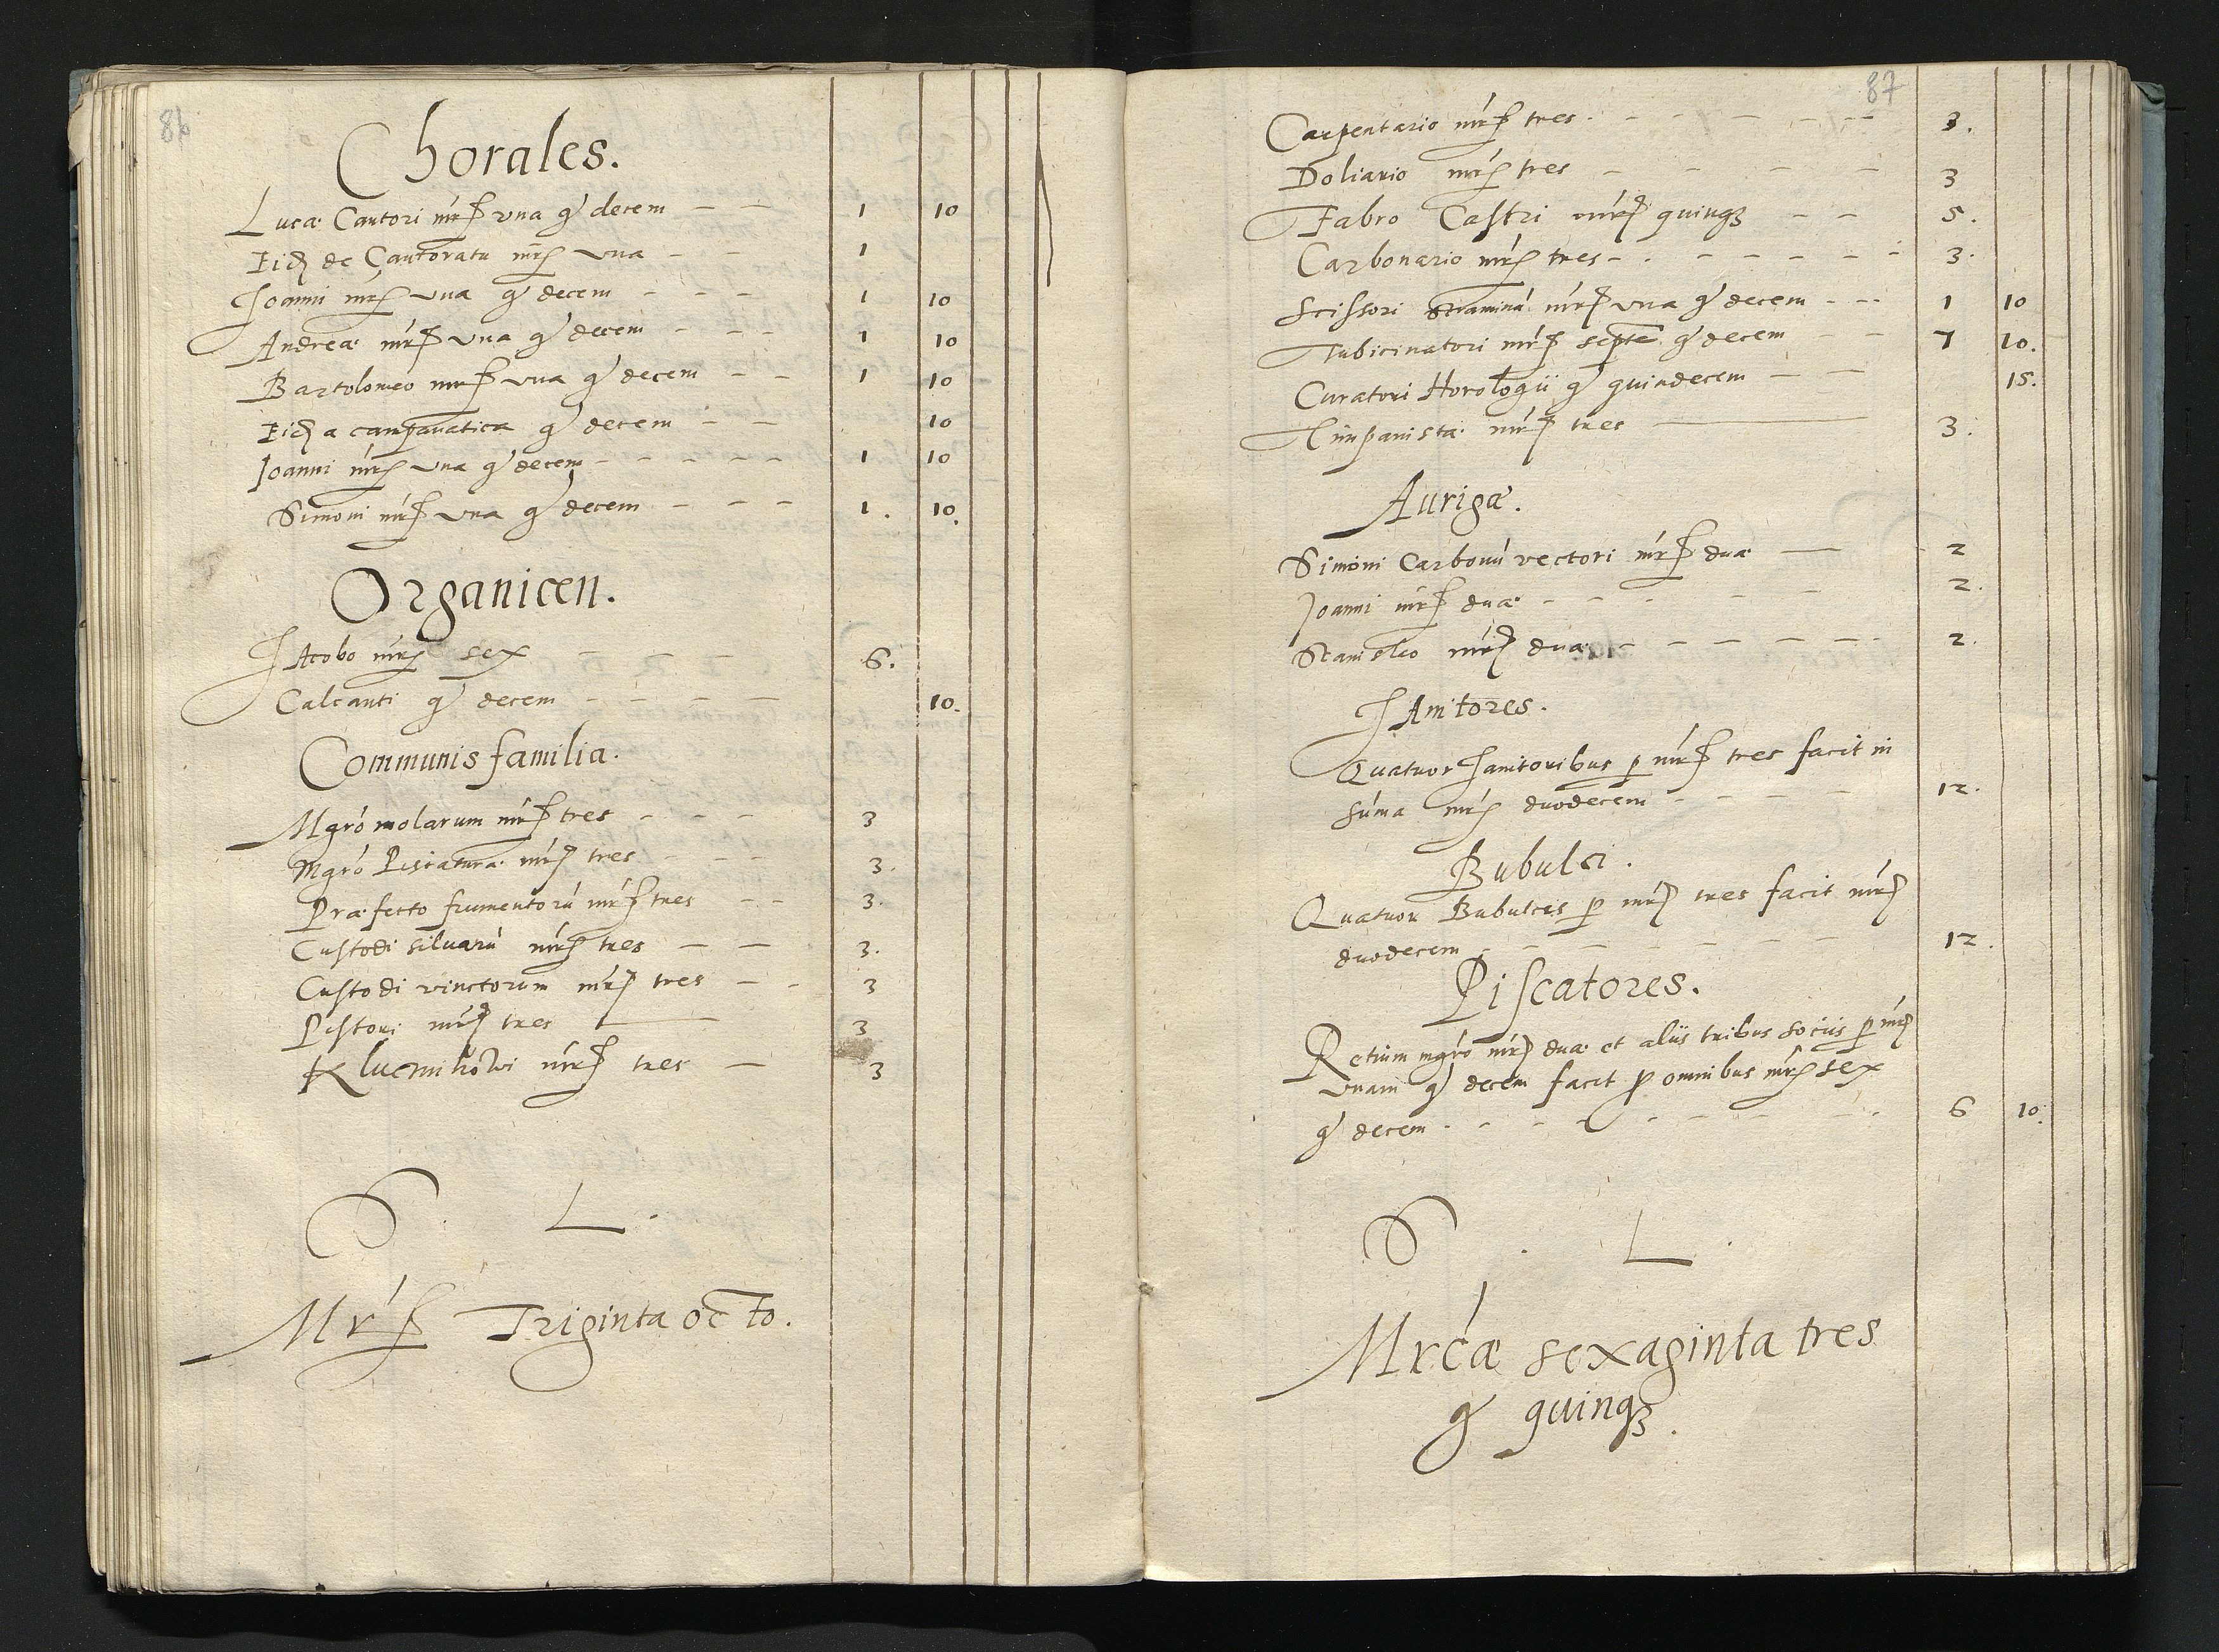 86
Chorales.
Lucæ Cantori mrc̃ vna g̃ decem - - 1 10
Eid de Cantoratu mrc̃ vna - - 1
Joanni mrc̃ vna g̃ decem - - - 1 10
Andreæ mrc̃ vna g̃ decem - - - 1 10
Bartolomeo mrc̃ vna g̃ decem - - 1 10
Eid a campanatica g̃ decem - - 10
Joanni mrc̃ vna g̃ decem - - - - - 1 10
Simoni mrc̃ vna g̃ decem - - - 1. 10.
Organicen.
JAcobo mrc̃ sex - - - 6.
Calcanti g̃ decem - - - - 10.
Communis familia.
Mgrõ molarum mrc̃ tres - - - 3
Mgrõ Piscaturæ mrc̃ tres - - - 3.
Præfecto frumentorũ mrc̃ tres - - 3.
Custodi siluarũ mrc̃ tres - - 3.
Custodi vinctorum mrc̃ tres - - 3
Pistori mrc̃ tres — 3
Klucznikowi mrc̃ tres — 3
S. L.
Mrc̃ Triginta octo.
87
Carpentario mrc̃ tres. - - - - - - 3.
Doliario mrc̃ tres - - - - 3
Fabro Castri mrc̃ quinqȝ - - 5.
Carbonario mrc̃ tres - - - - - - - 3.
Scissori straminũ mrc̃ vna g̃ decem - - - 1 10
Tubicinatori mrc̃ septẽ g̃ decem - - 7 10.
Curatori Horologii g̃ quindecem - - 15.
Timpanistæ mrc̃ tres — 3.
Aurigæ.
Simoni Carbonũ vectori mrc̃ duæ — 2
Joanni mrc̃ duæ - - - - - 2.
Stanislao mrc̃ duæ - - - - - - 2.
JAnitores.
Quatuor Janitoribus p mrc̃ tres facit in
sum̃a mrc̃ duodecem - - - - 12.
Bubulci.
Quatuor Bubulcis p mrc̃ tres facit mrc̃
duodecem - - - - - - - 12.
Piscatores.
Retium mgrõ mrc̃ duæ et aliis tribus sociis p mrc̃
vnam g̃ decem facit p omnibus mrc̃ sex
g̃ decem - - - - - - - - 6 10.
S. L.
Mrcæ sexaginta tres
g̃ quinqȝ.